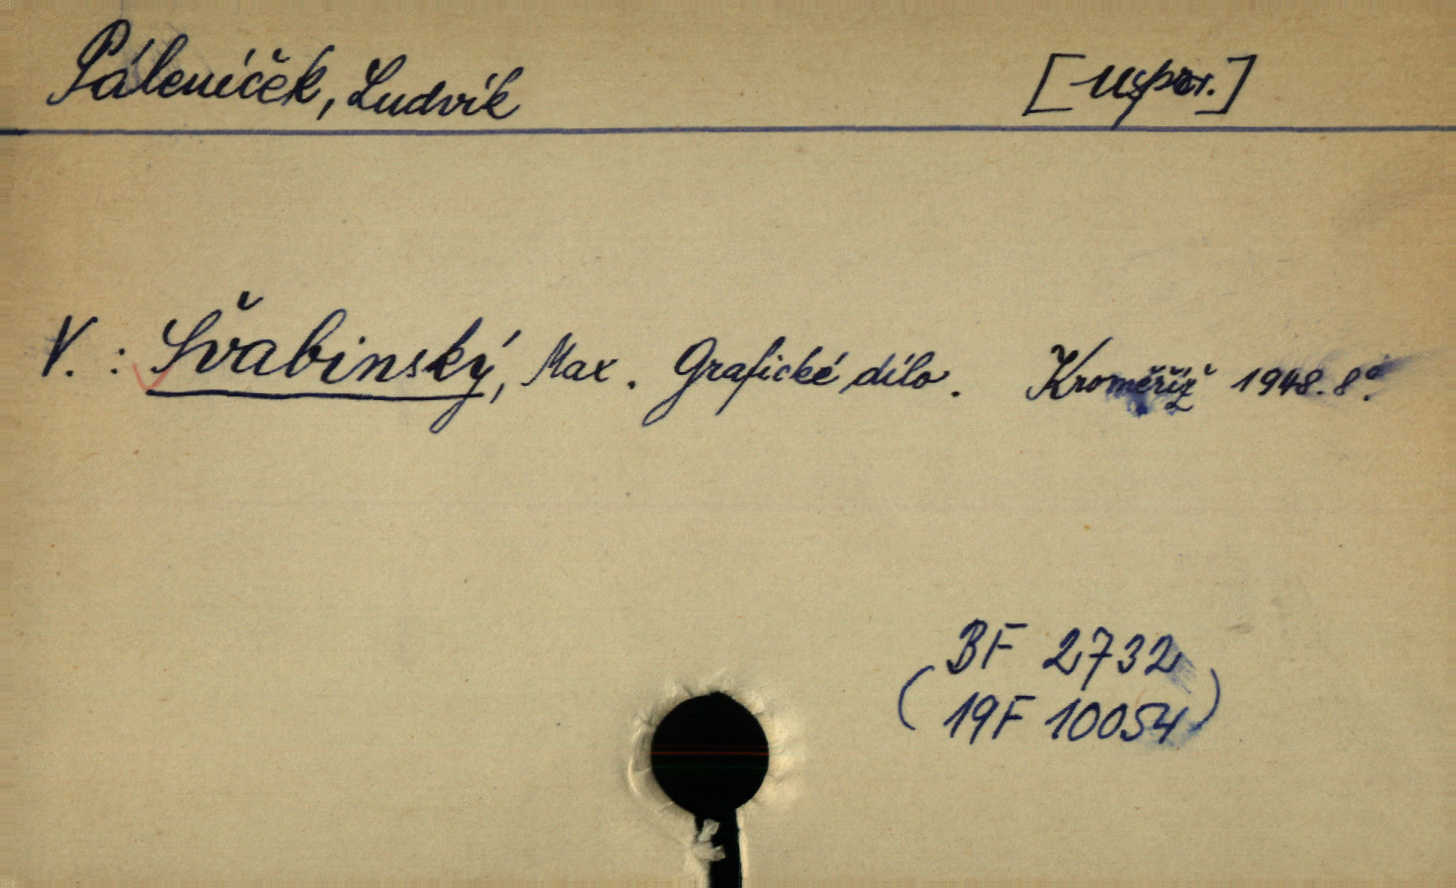 Páleníček, Ludvík [uspoř.]
V.: Švabinský, Max. Grafické dílo. Kroměříž 1948. 8°.
BF 2732
(19F 10054)